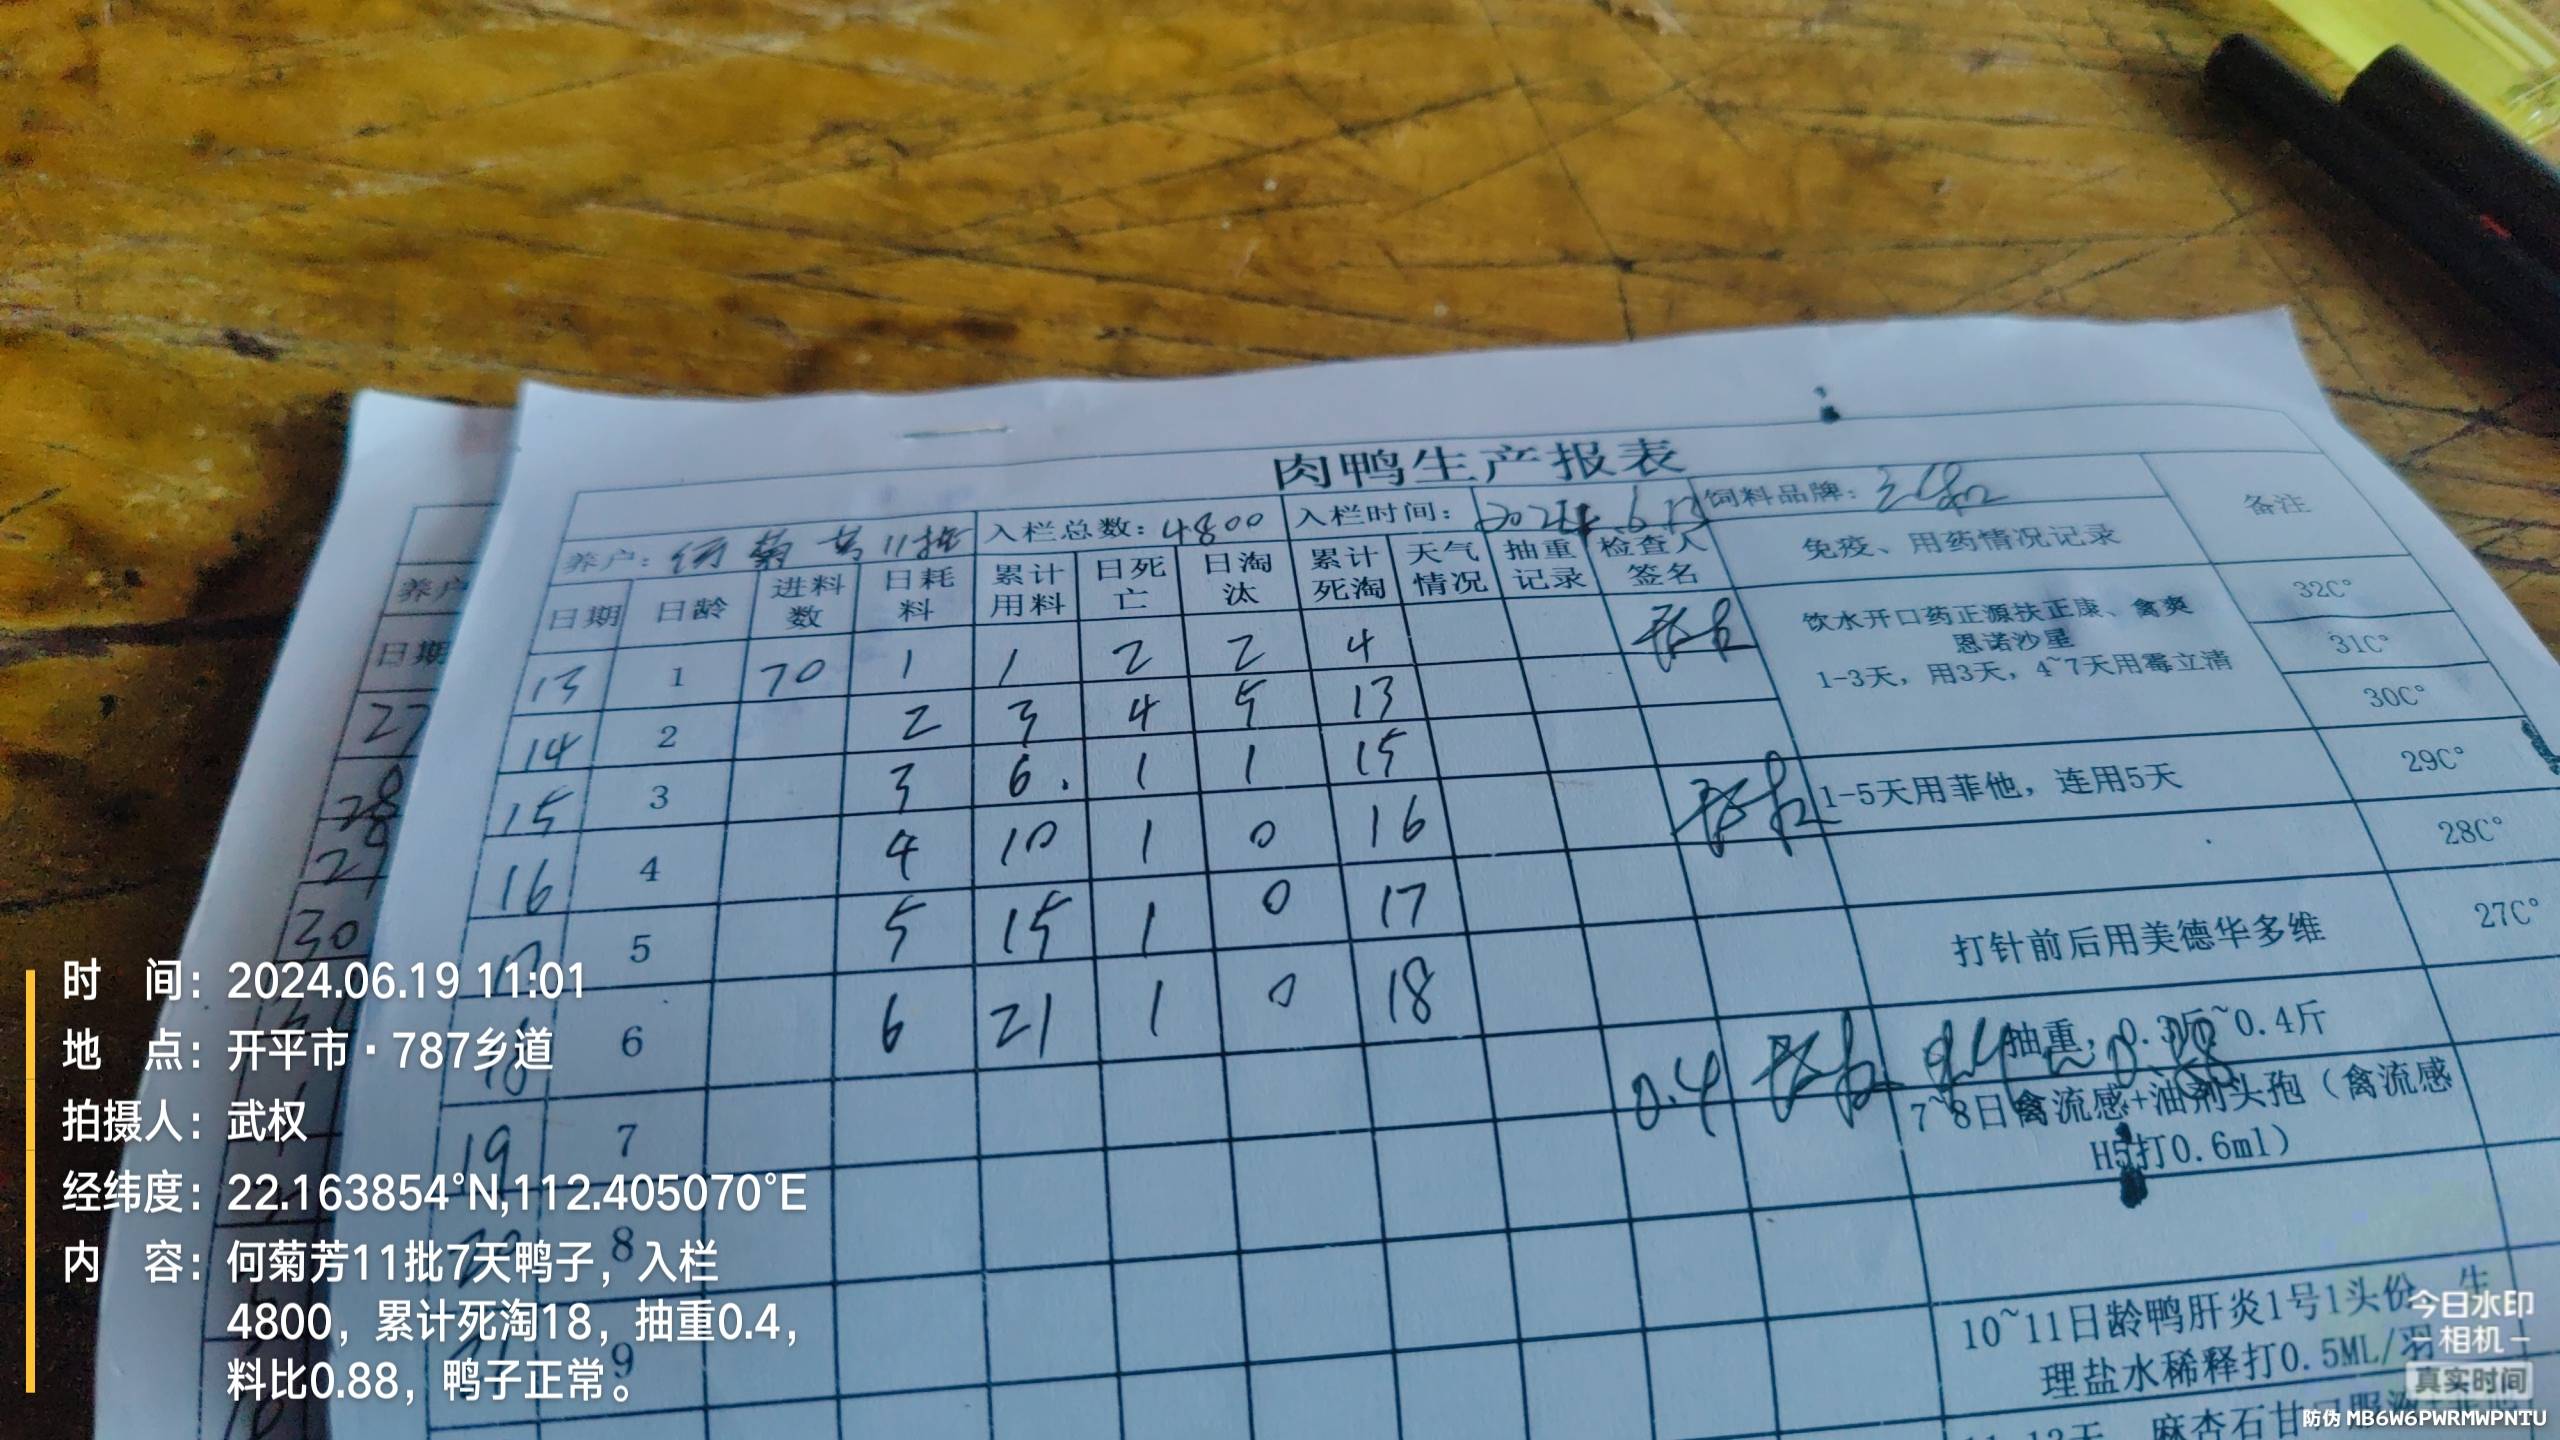 肉鸭生产报表
养户：何菊芳11批 入栏总数：4800 入栏时间：2024.6.13 饲料品牌：
日期 日龄 进料数 日耗料 累计用料 日死亡 日淘汰 累计死淘 天气情况 抽重记录 检查人签名 免疫、用药情况记录 备注
13 1 70 1 1 2 2 4
饮水开口药正源扶正康、禽爽
恩诺沙星
1-3天，用3天，4~7天用霉立清
32C°
14 2 2 3 4 5 13
31C°
15 3 3 6. 1 1 15
30C°
16 4 4 10 1 0 16
1-5天用菲他，连用5天
29C°
17 5 5 15 1 0 17
28C°
18 6 6 21 1 0 18
打针前后用美德华多维
27C°
19 7 0.4
抽重：0.3斤~0.4斤
7~8日禽流感+油剂头孢（禽流感
H5打0.6ml）
8
9
10~11日龄鸭肝炎1号1头份
理盐水稀释打0.5ML/羽
麻杏石甘
养户
日期
27
28
29
30
时 间：2024.06.19 11:01
地 点：开平市·787乡道
拍摄人：武权
经纬度：22.163854°N,112.405070°E
内 容：何菊芳11批7天鸭子，入栏
4800，累计死淘18，抽重0.4，
料比0.88，鸭子正常。
今日水印
相机
真实时间
防伪 MB6W6PWRMWPNTU